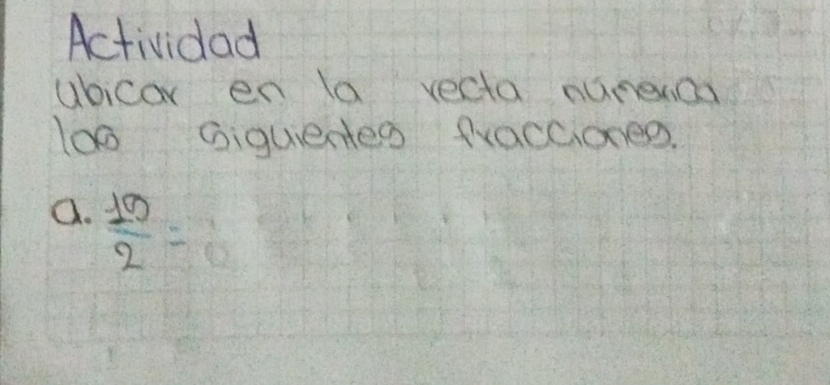 Actividad
Ubicar en la recta númerica
las siguientes fracciones.
a. 19/2 =